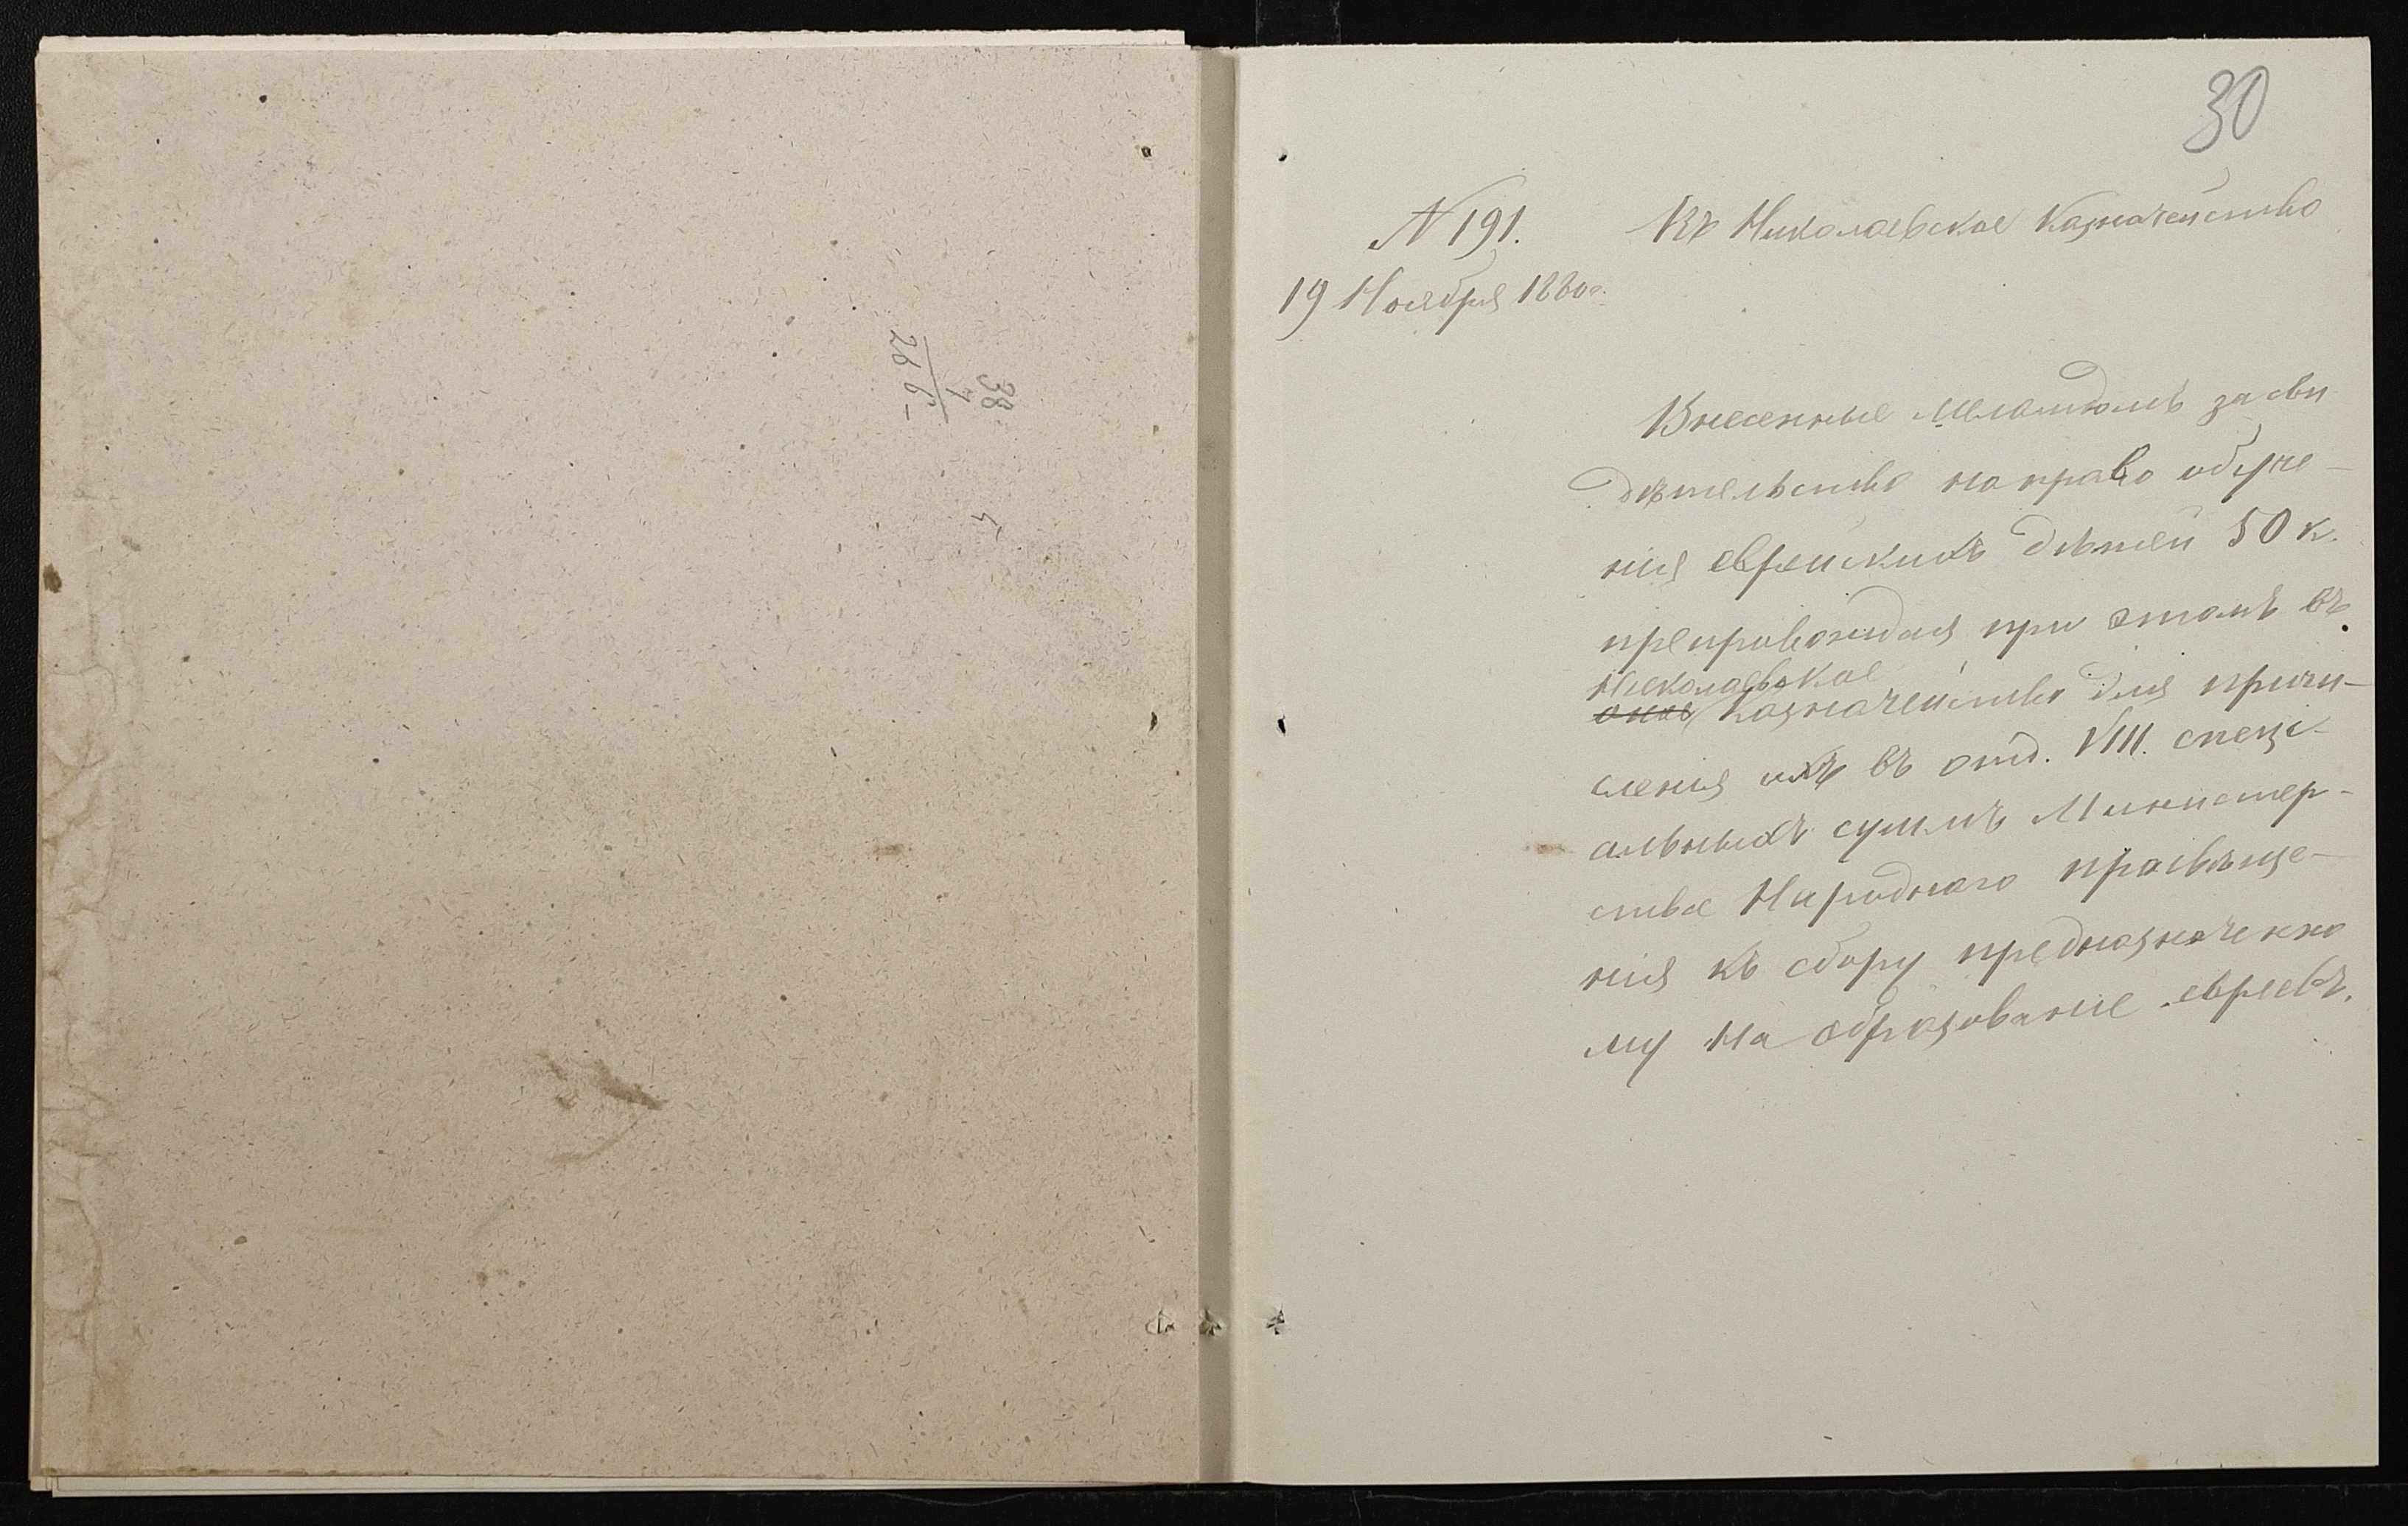 38
7
266-
30
N 191.
Въ Николаевское Казначейство
19 Ноября 1880 г.
Внесенные Меламдомъ за сви
дѣтельство на право обуче-
нія еврейскихъ дѣтей 50 к.
препровождая при этомъ въ
Николаевское
оное Казначейство для причи-
сленія ихъ въ отд. VIII. спеці-
альныхъ суммъ Министер-
ства Народнаго просвѣще-
нія къ сбору предназначенно
му на образованіе евреевъ.